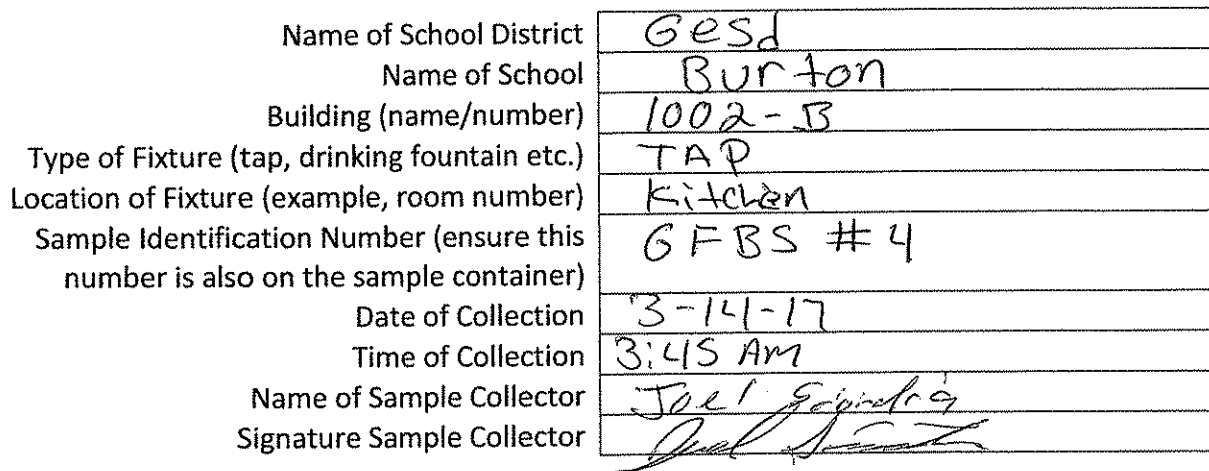 Name of School District GESd
Name of School Burton
Building (name/number) 1002-B
Type of Fixture (tap, drinking fountain etc.) TAP
Location of Fixture (example, room number) Kitchen
Sample Identification Number (ensure this
number is also on the sample container) GFBS #4
Date of Collection 3-14-17
Time of Collection 3:45 AM
Name of Sample Collector Joel
Signature Sample Collector